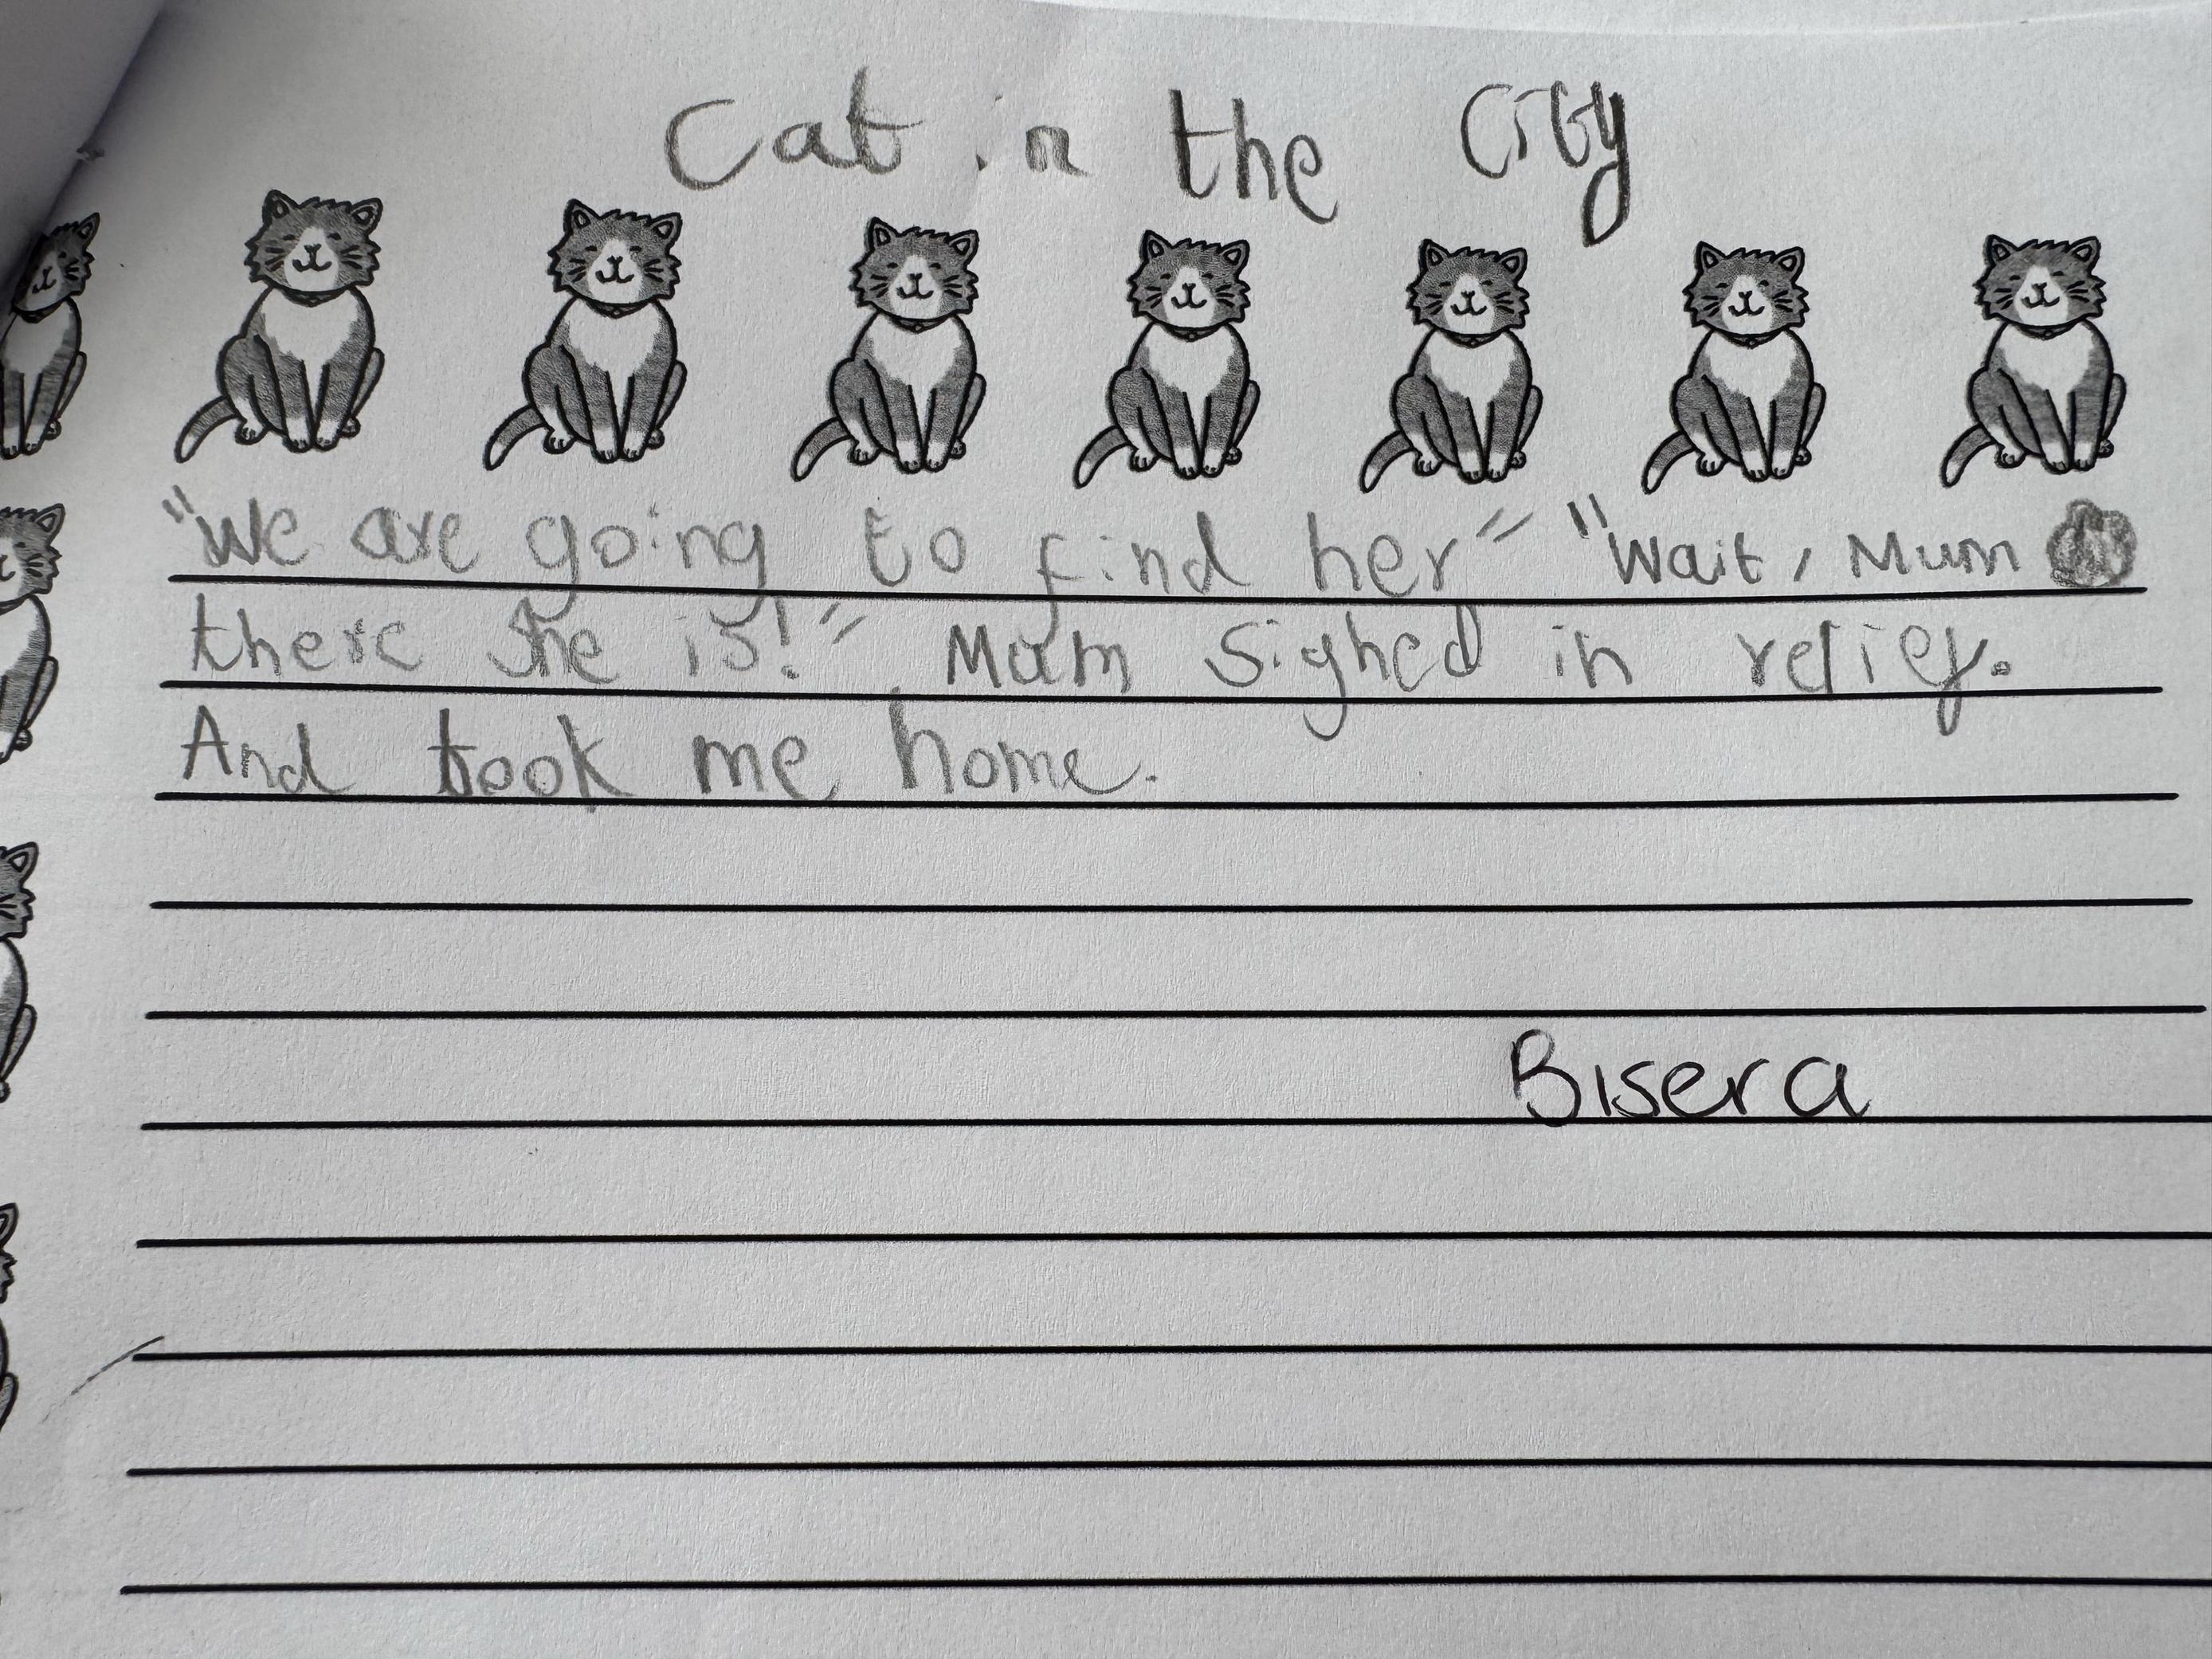 Cat in the City
"We are going to find her" "Wait, Mum
there she is!" Mum sighed in relief.
And took me home.
Bisera